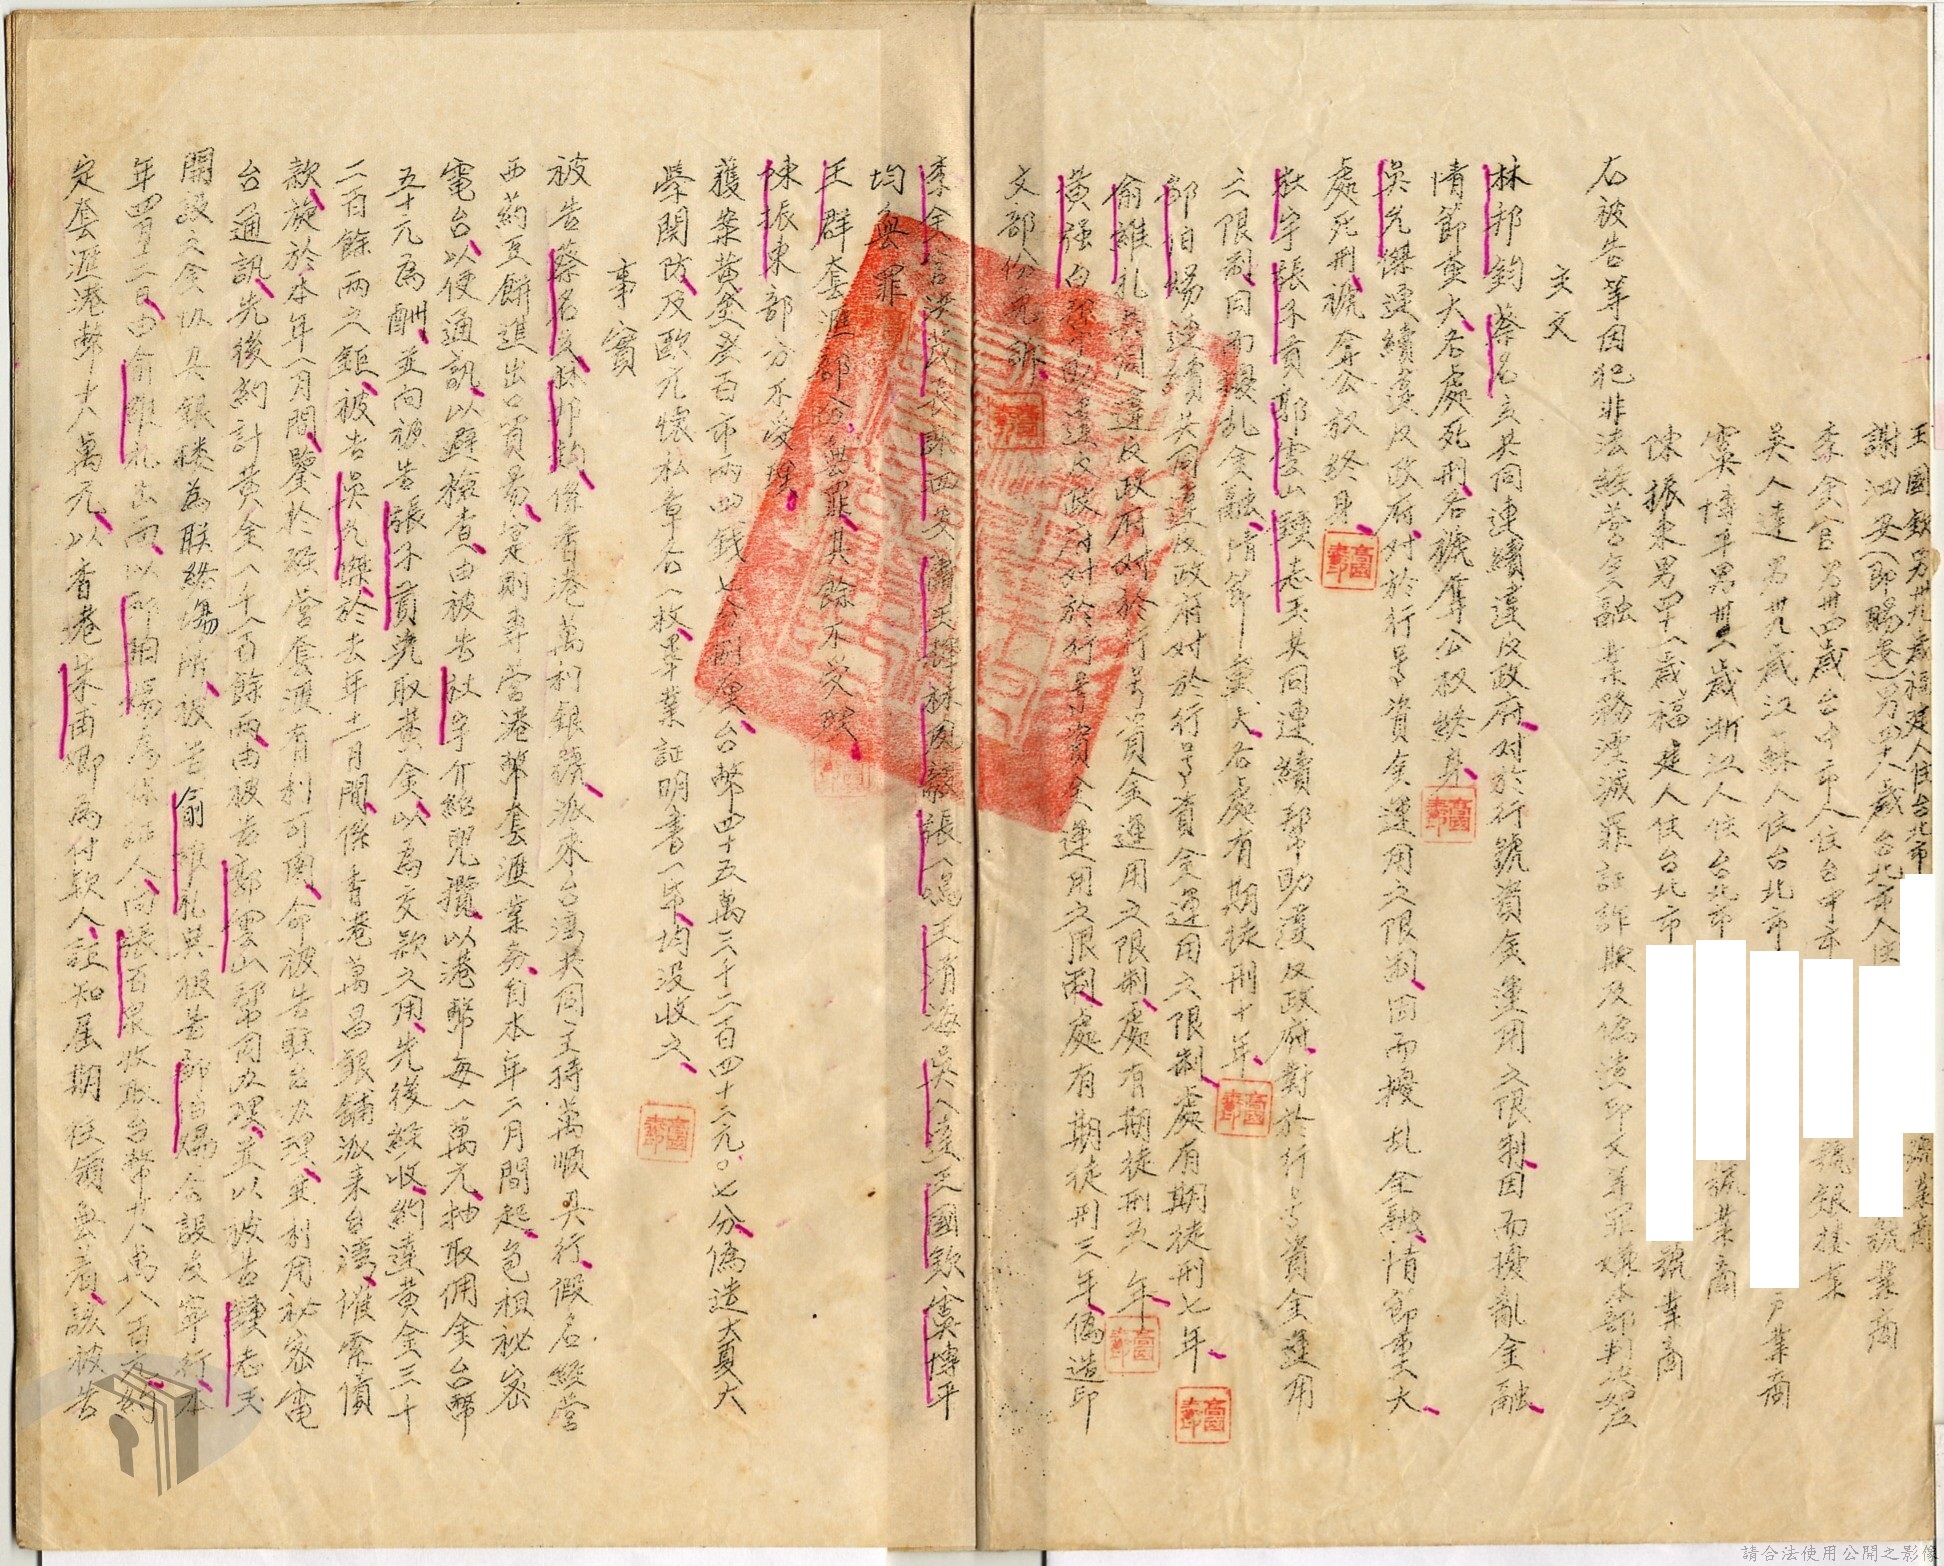 王國欽男卅九歲福建人住台北市 號業商
謝泗安(即賜安)男卅八歲台北市人住 號業商
李金含男卅四歲台中市人住台中市 號銀樓業
吳人達男卅九歲江蘇人住台北市 戶業商
虞博平男卅一歲浙江人住台北市 號業商
陳振東男四十一歲福建人住台北市 號業商
右被告等因犯非法經營金融業務湮滅罪証詐欺及偽造印文等罪嫌本部判決如左
主文
林邦鈞蔡名玄共同連續違反政府对於行號資金運用之限制因而擾亂金融
情節重大各處死刑各褫奪公权終身
吳允傑連續違反政府对於行号資金運用之限制因而擾乱金融情節重大
處死刑褫奪公权終身
杜宇張不貢郭雲山鍾志玉共同連續幫助違反政府對於行号資金運用
之限制因而擾乱金融情節重大各處有期徒刑十年
邰伯暘連續共同違反政府对於行号資金運用之限制處有期徒刑七年
俞維礼共同違反政府对於行号資金運用之限制處有期徒刑五年
黃強白 幫助違反政府对於行号資金運用之限制處有期徒刑三年偽造印
文部份 訴
李金含 謝泗安 天輝林 張 鳴王清海吳人達王國欽虞博平
均無罪
王群套滙部份無罪其餘不受理
陳振東部分不受理
獲案黃金叁百市兩四錢七分 台幣四十五萬三千二百四十二元〇七分偽造大夏大
學関防及歐元懷私章各一枚畢業証明書一紙均没收之
事實
被告蔡名玄林邦鈞係香港萬利銀號派來台灣共同主持萬順具行假名經營
西葯豆餅進出口貿易實則專營港幣套滙業務自本年二月間起包租祕密
電台以便通訊以避檢查由被告杜宇介紹兜攬以港幣每一萬元抽取佣金台幣
五十元為酬並向被告張不貢洗取黃金以為交款之用先後經收約達黃金三千
二百餘两之鉅被告吳允傑於去年十一月間係香港萬昌銀鋪派来台湾催索債
款旋於本年一月間鑒於經營套滙有利可圖命被告駐台办理並利用祕密電
台通訊先後約計黃金一千一百餘两由被告郭雲山幫同办理並以被告鍾志玉
開設之金 具銀楼為聯絡塲所被告俞維礼與被告邰伯暘合謀 寧行本
年四月二日由俞維礼出面以邰伯暘為保証人向張百泉收取台幣廿八萬八百元約
定套滙港幣十八萬元以香港朱南卿為付款人詎知屆期往領無着該被告